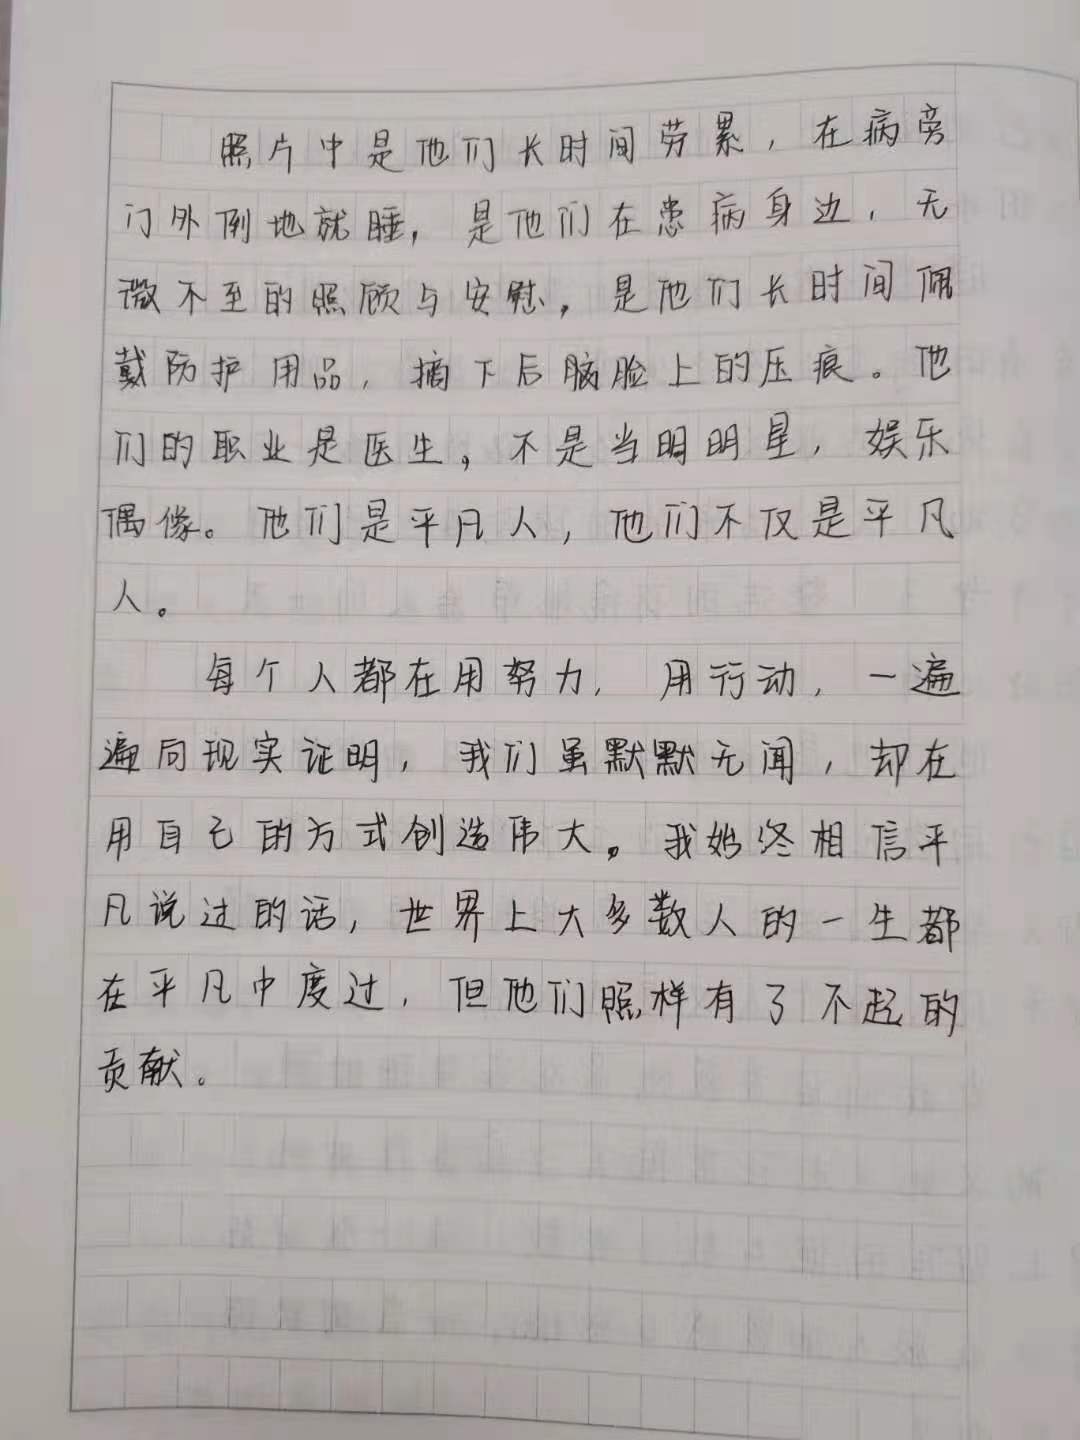 照片中是他们长时间劳累，在病旁
门外倒地就睡，是他们在患病身边，无
微不至的照顾与安慰，是他们长时间佩
戴防护用品，摘下后脑脸上的压痕。他
们的职业是医生，不是当明明星，娱乐
偶像。他们是平凡人，他们不仅是平凡
人。
每个人都在用努力，用行动，一遍
遍向现实证明，我们虽默默无闻，却在
用自己的方式创造伟大。我始终相信平
凡说过的话，世界上大多数人的一生都
在平凡中度过，但他们照样有了不起的
贡献。